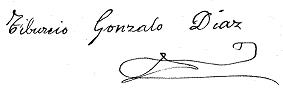 Tiburcio Gonzalo Díaz